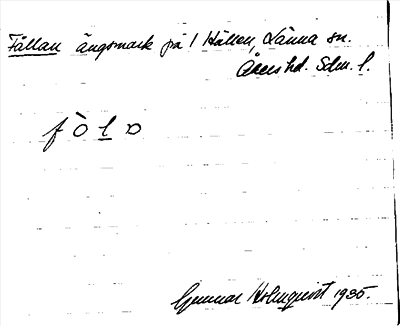 Fållan ängsmark på 1 Hållen, Länna sn.
Åkers hd. Sdm. l.
Gunnar Holmquist 1935.